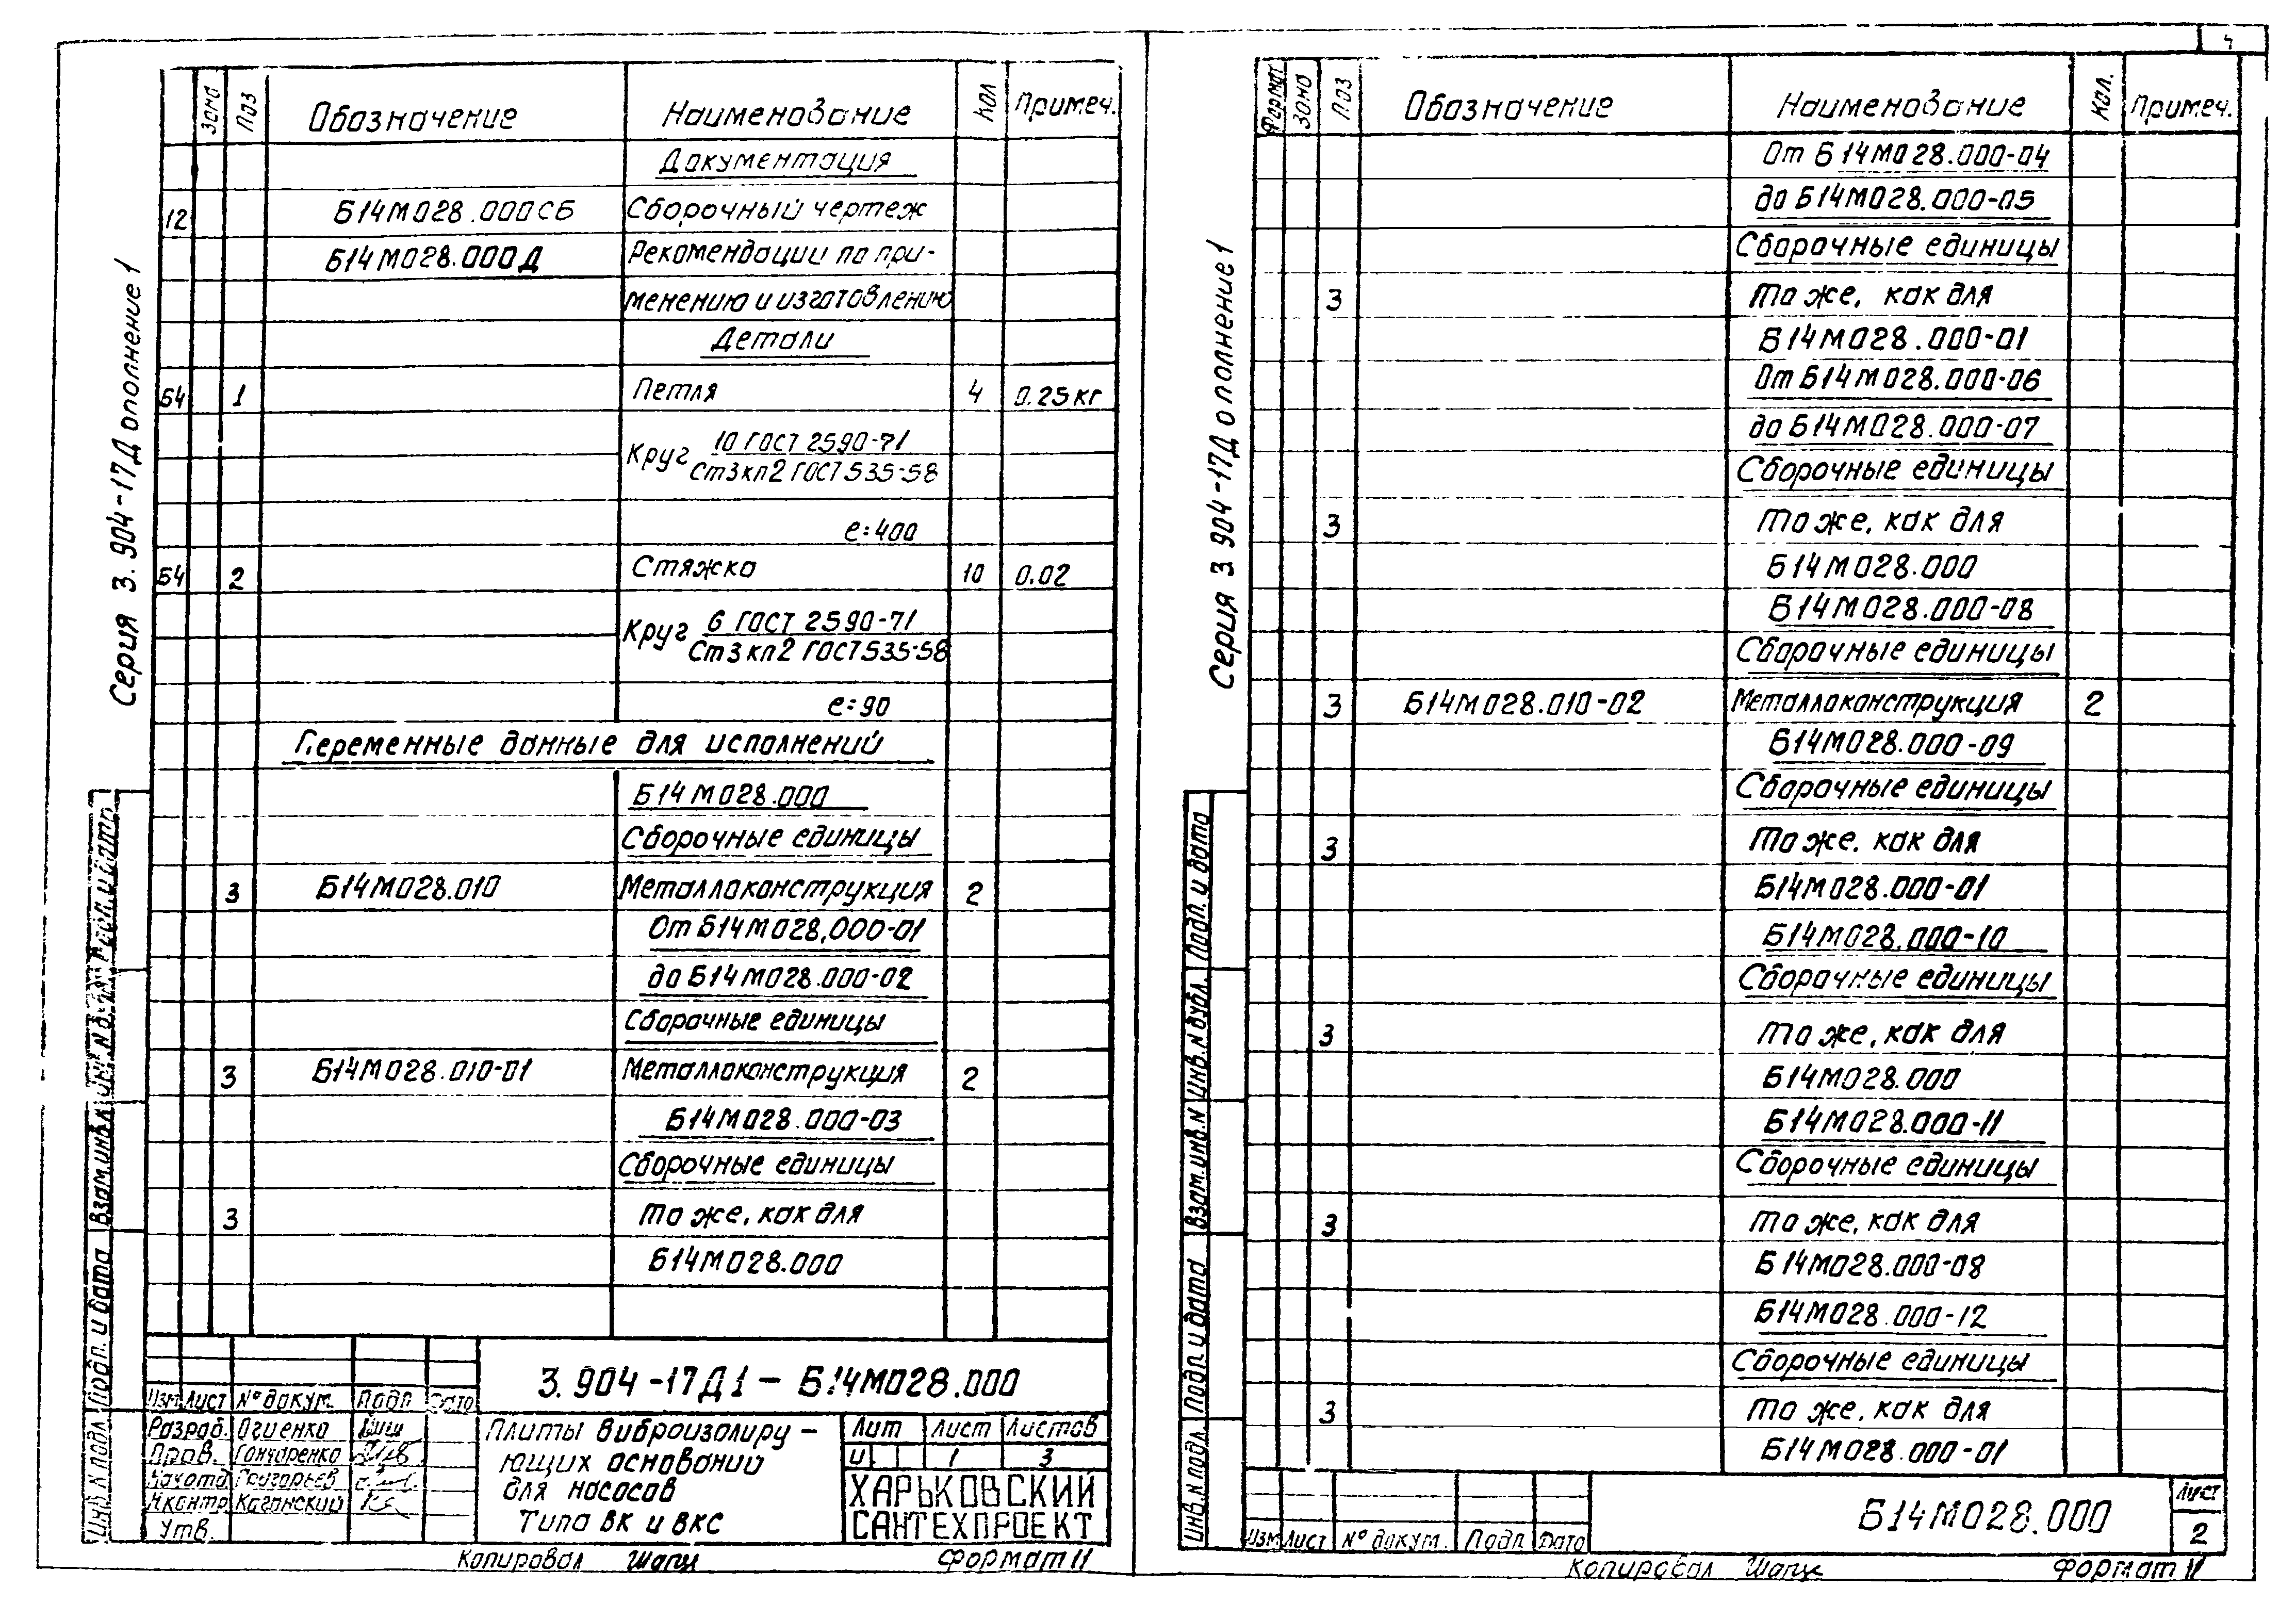 4
Серия 3.904-17 Дополнение 1
Зона Поз Обозначение Наименование Кол Примеч.
Документация
12 Б14М028.000СБ Сборочный чертеж
Б14М028.000Д Рекомендации по при-
менению и изготовлению
Детали
Б4 1 Петля 4 0.25кг
Круг 10 ГОСТ 2590-71
Ст3кп2 ГОСТ535-58
е=400
Б4 2 Стяжка 10 0.02
Круг 6 ГОСТ 2590-71
Ст3кп2 ГОСТ535-58
е=90
Переменные данные для исполнений
Б14М028.000
Сборочные единицы
3 Б14М028.010 Металлоконструкция 2
От Б14М028.000-01
до Б14М028.000-02
Сборочные единицы
3 Б14М028.010-01 Металлоконструкция 2
Б14М028.000-03
Сборочные единицы
3 то же, как для
Б14М028.000
3.904-17Д1-Б14М028.000
Изм Лист № докум. Подп Дата
Разраб. Огиенко
Пров. Гончаренко
Григорьев
Н.контр Каганский
Утв.
Плиты виброизолиру-
ющих оснований
для насосов
Типа ВК и ВКС
Лит Лист Листов
И 1 3
ХАРЬКОВСКИЙ
САНТЕХПРОЕКТ
Копировал Шапц Формат 11
Инв.N подл. Подп. и дата Взам.инв.N Инв.N дубл. Подп. и дата
Серия 3.904-17 Дополнение 1
Формат Зона Поз Обозначение Наименование Кол. Примеч.
От Б14М028.000-04
до Б14М028.000-05
Сборочные единицы
3 то же, как для
Б14М028.000-01
От Б14М028.000-06
до Б14М028.000-07
Сборочные единицы
3 то же, как для
Б14М028.000
Б14М028.000-08
Сборочные единицы
3 Б14М028.010-02 Металлоконструкция 2
Б14М028.000-09
Сборочные единицы
3 то же, как для
Б14М028.000-01
Б14М028.000-10
Сборочные единицы
3 то же, как для
Б14М028.000
Б14М028.000-11
Сборочные единицы
3 то же, как для
Б14М028.000-08
Б14М028.000-12
Сборочные единицы
3 то же, как для
Б14М028.000-01
Изм Лист № докум. Подп Дата
Б14М028.000
Лист
2
Копировал Шапц Формат 11
Инв.N подл. Подп. и дата Взам.инв.N Инв.N дубл. Подп. и дата